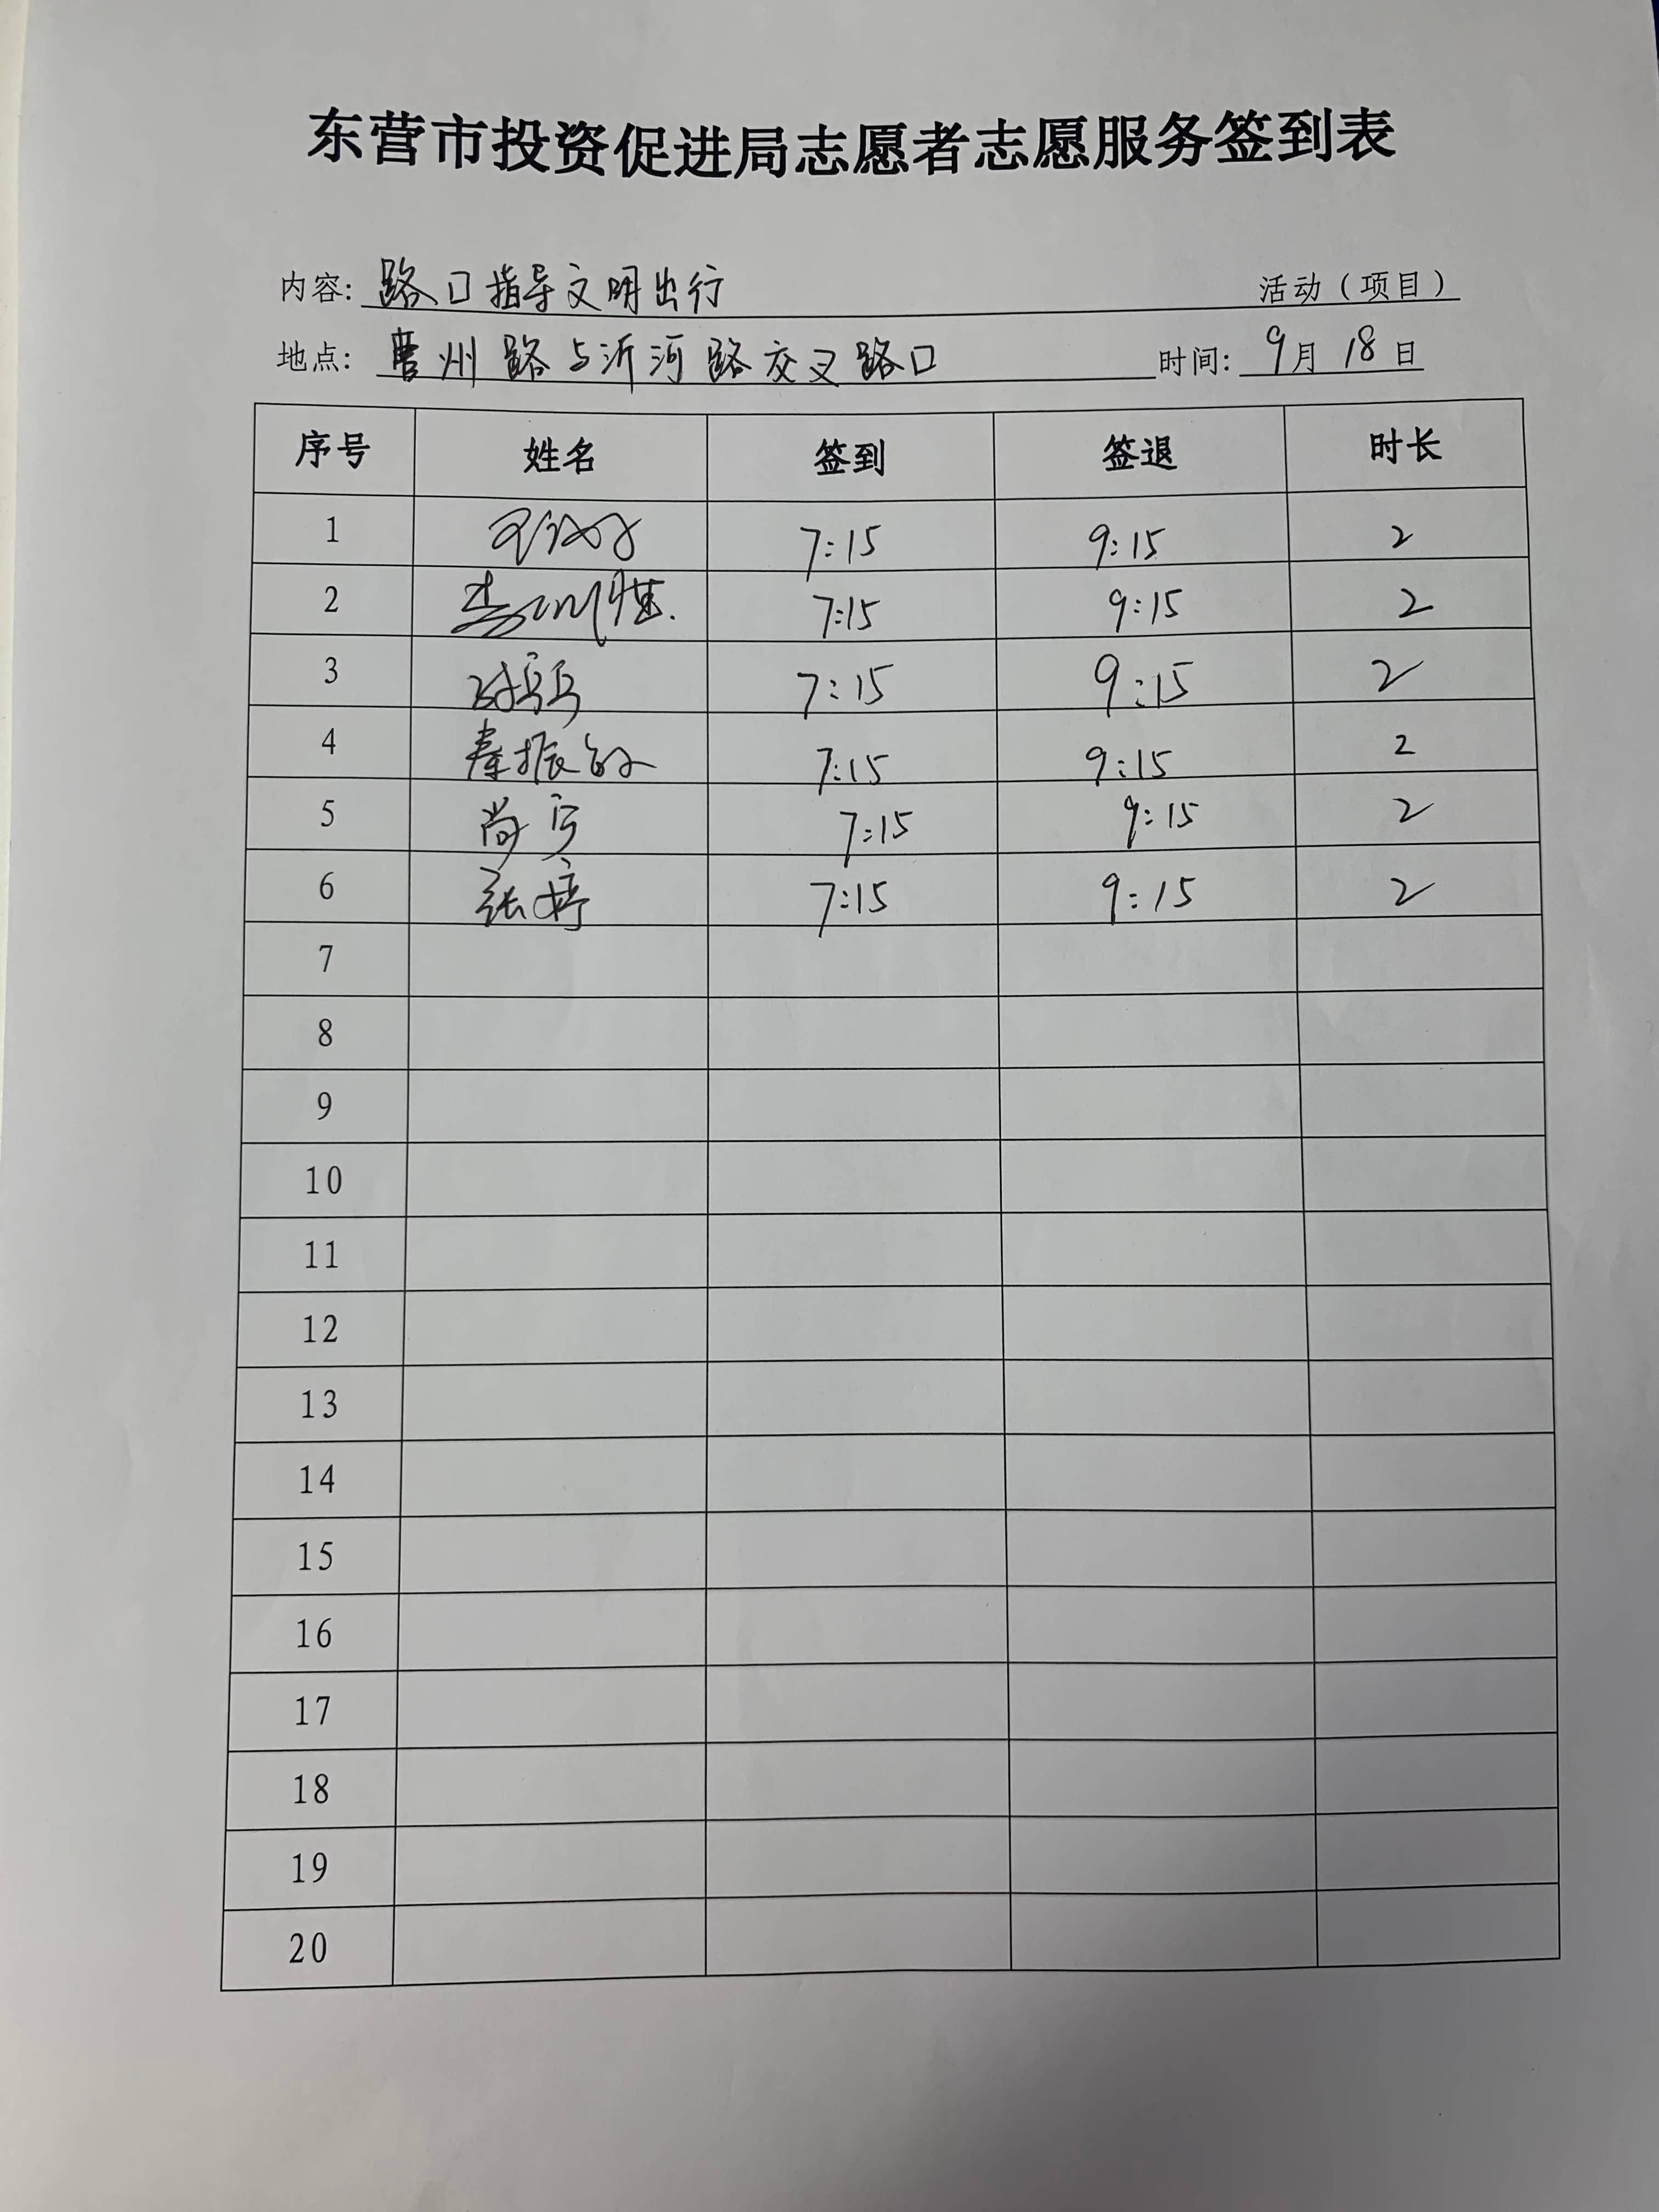 东营市投资促进局志愿者志愿服务签到表
内容: 路口指导文明出行 活动（项目）
地点: 曹州路与沂河路交叉路口 时间: 9月18日
序号 姓名 签到 签退 时长
1 7:15 9:15 2
2 7:15 9:15 2
3 7:15 9:15 2
4 秦振 7:15 9:15 2
5 尚宁 7:15 9:15 2
6 张婷 7:15 9:15 2
7
8
9
10
11
12
13
14
15
16
17
18
19
20